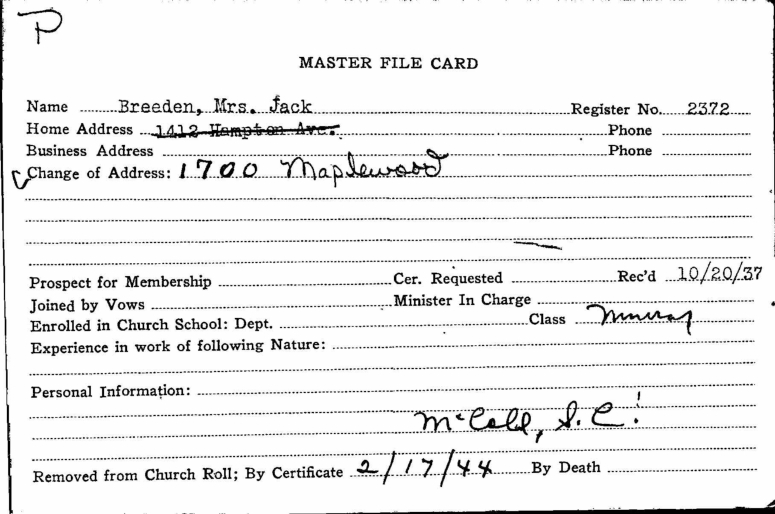 P
MASTER FILE CARD
Name Breeden, Mrs. Jack Register No. 2372
Home Address 1412 Hampton Ave. Phone
Business Address Phone
Change of Address: 1700 Maplewood
Prospect for Membership Cer. Requested Rec'd 10/20/37
Joined by Vows Minister In Charge
Enrolled in Church School: Dept. Class Murray
Experience in work of following Nature:
Personal Information:
McColl, S.C.
Removed from Church Roll; By Certificate 2/17/44 By Death